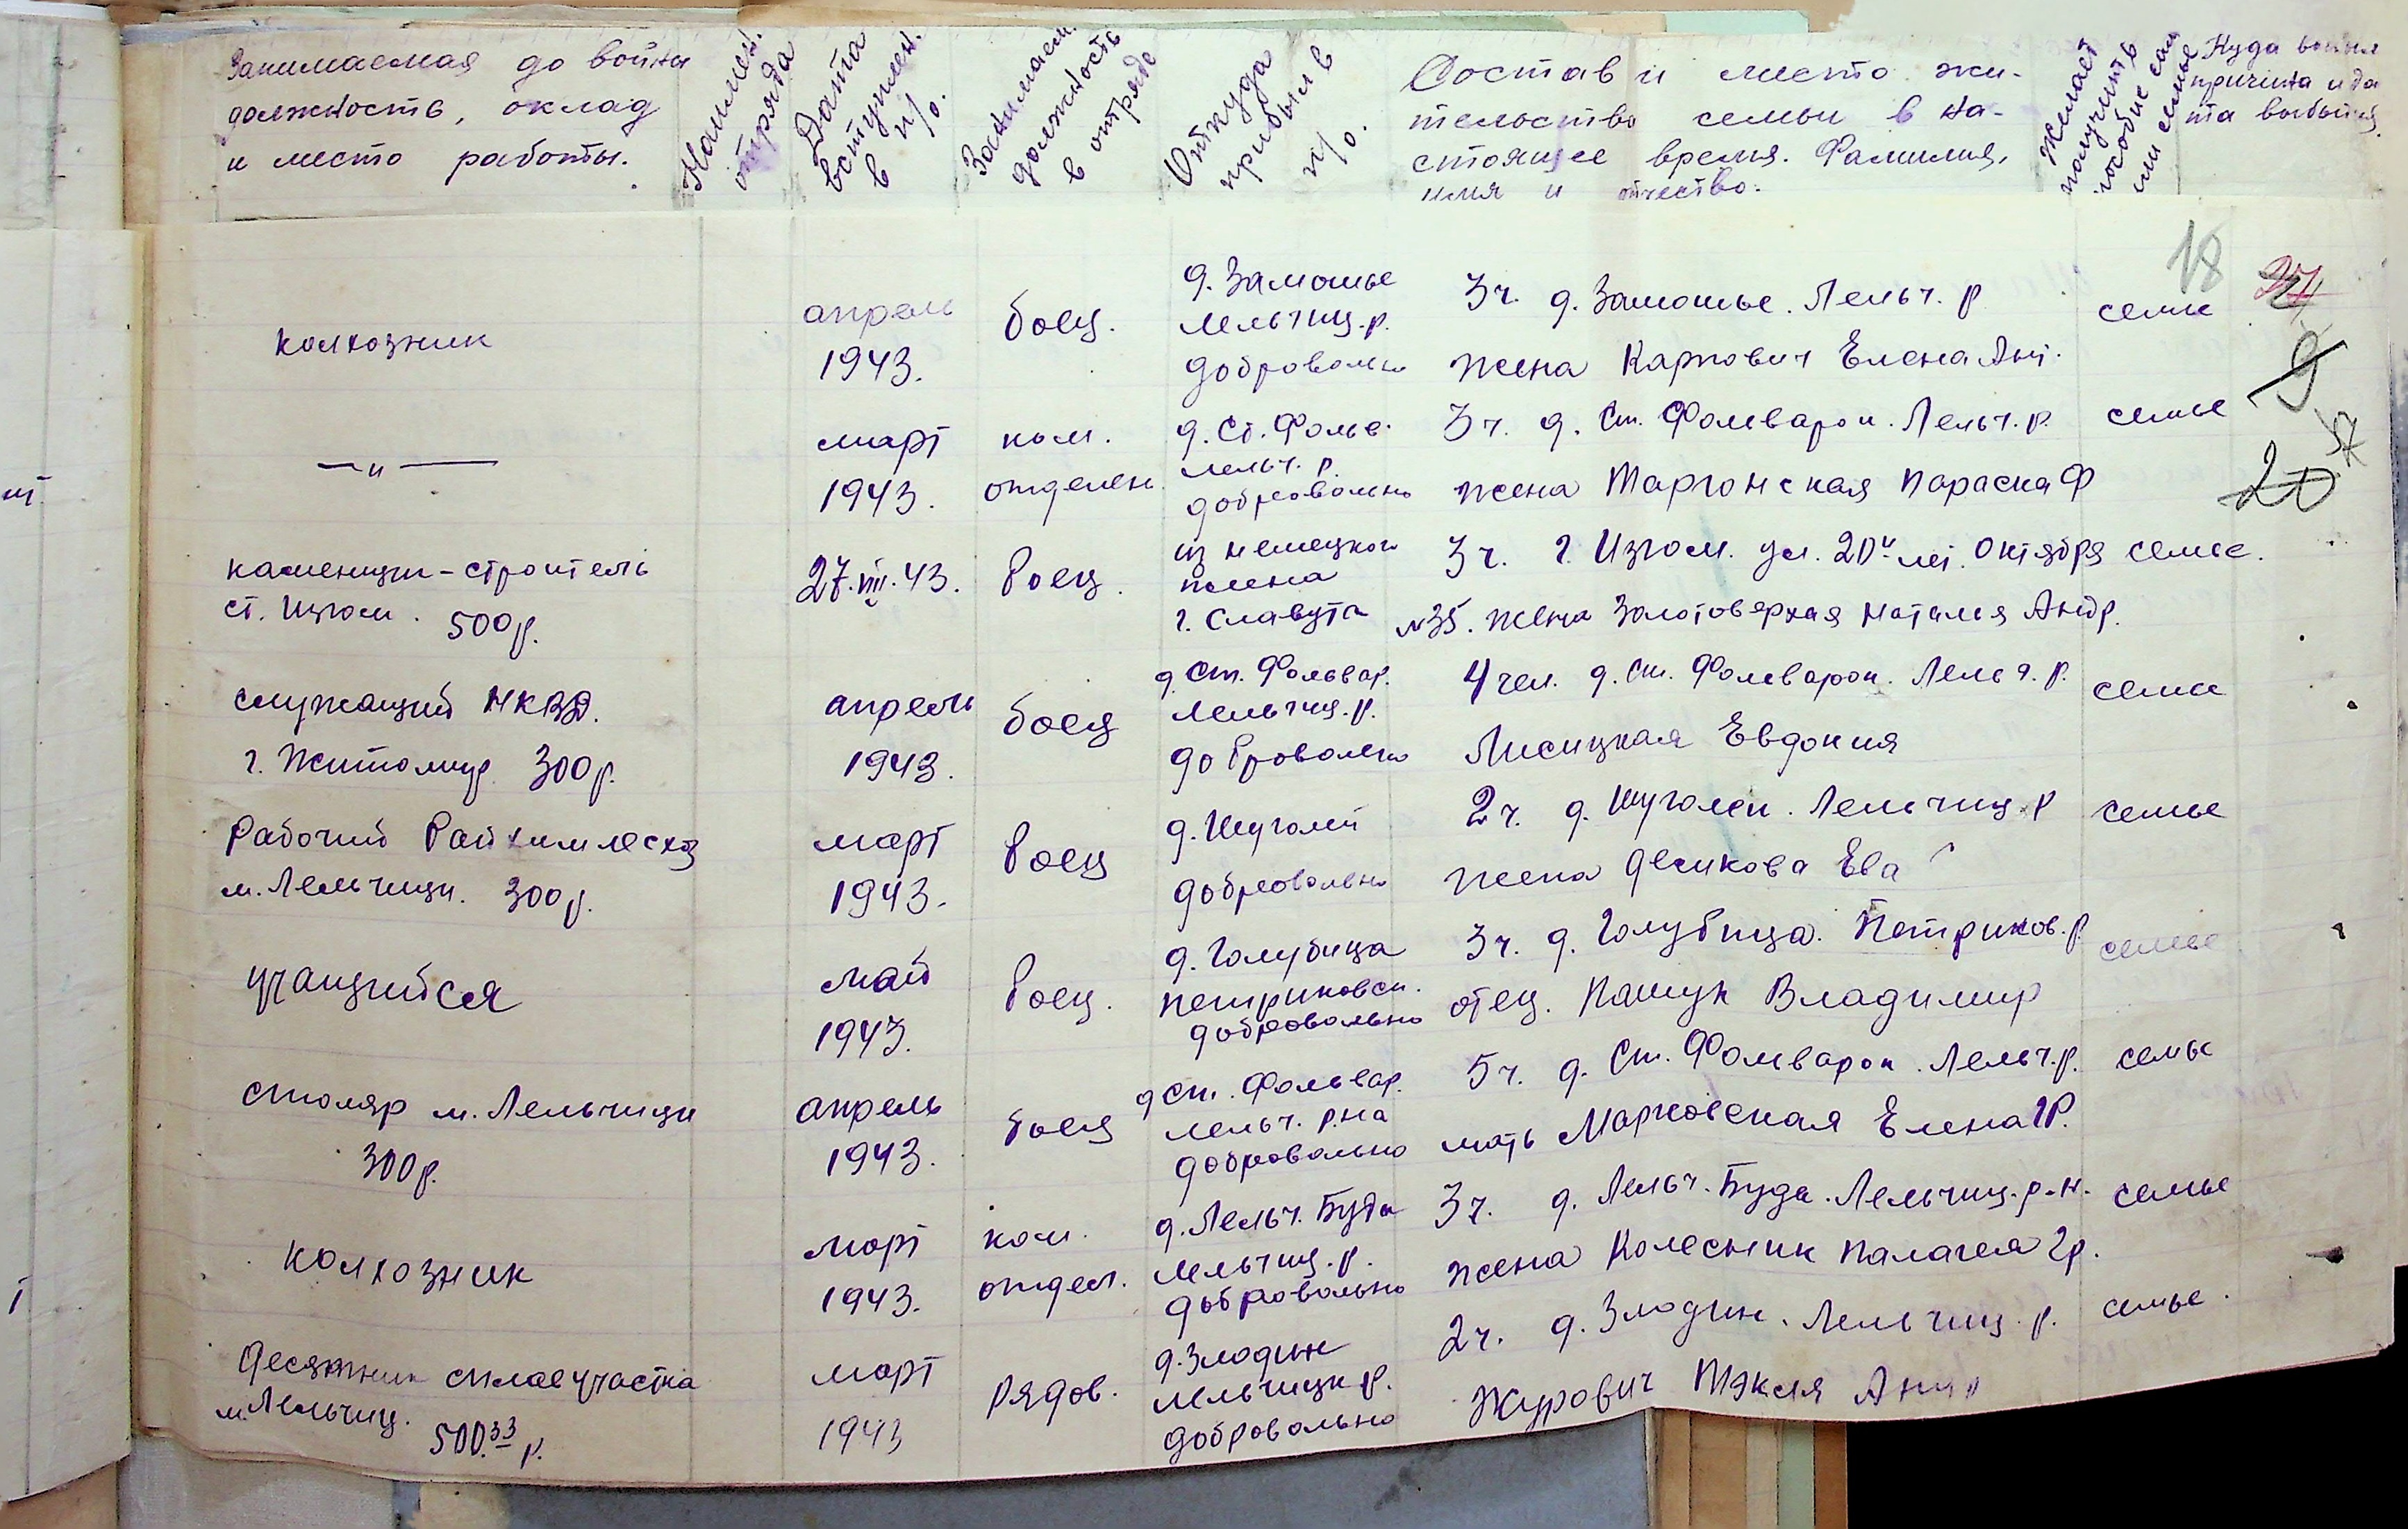 Занимаемая до войны
должность, оклад
и место работы.
Наимен.
отряда
Дата
вступлен.
в п/о.
Занимаем.
должность
в отряде
Откуда
прибыл в
п/о.
Состав и место жи-
тельство семьи в на-
стоящее время. Фамилия,
имя и отчество.
Желает
получить
пособие сам
или семье
Куда выбыл
причина и да
та выбытия
18
колхозник
апрель
1943.
боец.
д. Замошье
Лельчиц. р.
добровольно
3ч. д. Замошье. Лельч. р
жена Карпович Елена Ант.
семье
9
— " —
март
1943.
ком.
отделен.
д. Ст. Фольв.
Лельч. р.
добровольно
3ч. д. Ст. Фольварок. Лельч. р.
жена Таргонская Параска Ф
семье
57
20
каменщик-строитель
ст. Изюм. 500р.
27.III.43.
боец.
из немецкого
плена
г. Славута
3ч. г. Изюм. ул. 20и лет. Октября
№35. жена Золотоверхая Наталья Андр.
семье.
служащий НКВД.
г. Житомир 300р.
апрель
1943.
боец
д. Ст. Фольвар.
Лельчиц. р.
добровольно
4 чел. д. Ст. Фольварок. Лельч. р.
Лисицкая Евдокия
семье
Рабочий Райхимлесхоз
м. Лельчицы. 300р.
март
1943.
боец
д. Шуголей
добровольно
2ч. д. Шуголей. Лельчиц. р
жена Десикова Ева
семье
учащийся
май
1943.
боец.
д. Голубица
Петриковск.
добровольно
3ч. д. Голубица. Петриков. р.
отец. Пашук Владимир
семье
столяр м. Лельчицы
300р.
апрель
1943.
боец
д Ст. Фольвар.
Лельч. р.на
добровольно
5ч. д. Ст. Фольварок. Лельч. р.
мать Марковская Елена Гр.
семье
колхозник
март
1943.
ком.
отдел.
д. Лельч. Буда
Лельчиц. р.
добровольно
3ч. д. Лельч. Буда. Лельчиц. р-н.
жена Колесник Палагея Гр.
семье
Десятник сплавучастка
м. Лельчиц.
500.33 р.
март
1943
рядов.
д. Злодин
Лельчицк. р.
добровольно
2ч. д. Злодин. Лельчиц. р.
Журович Тэкля
семье.